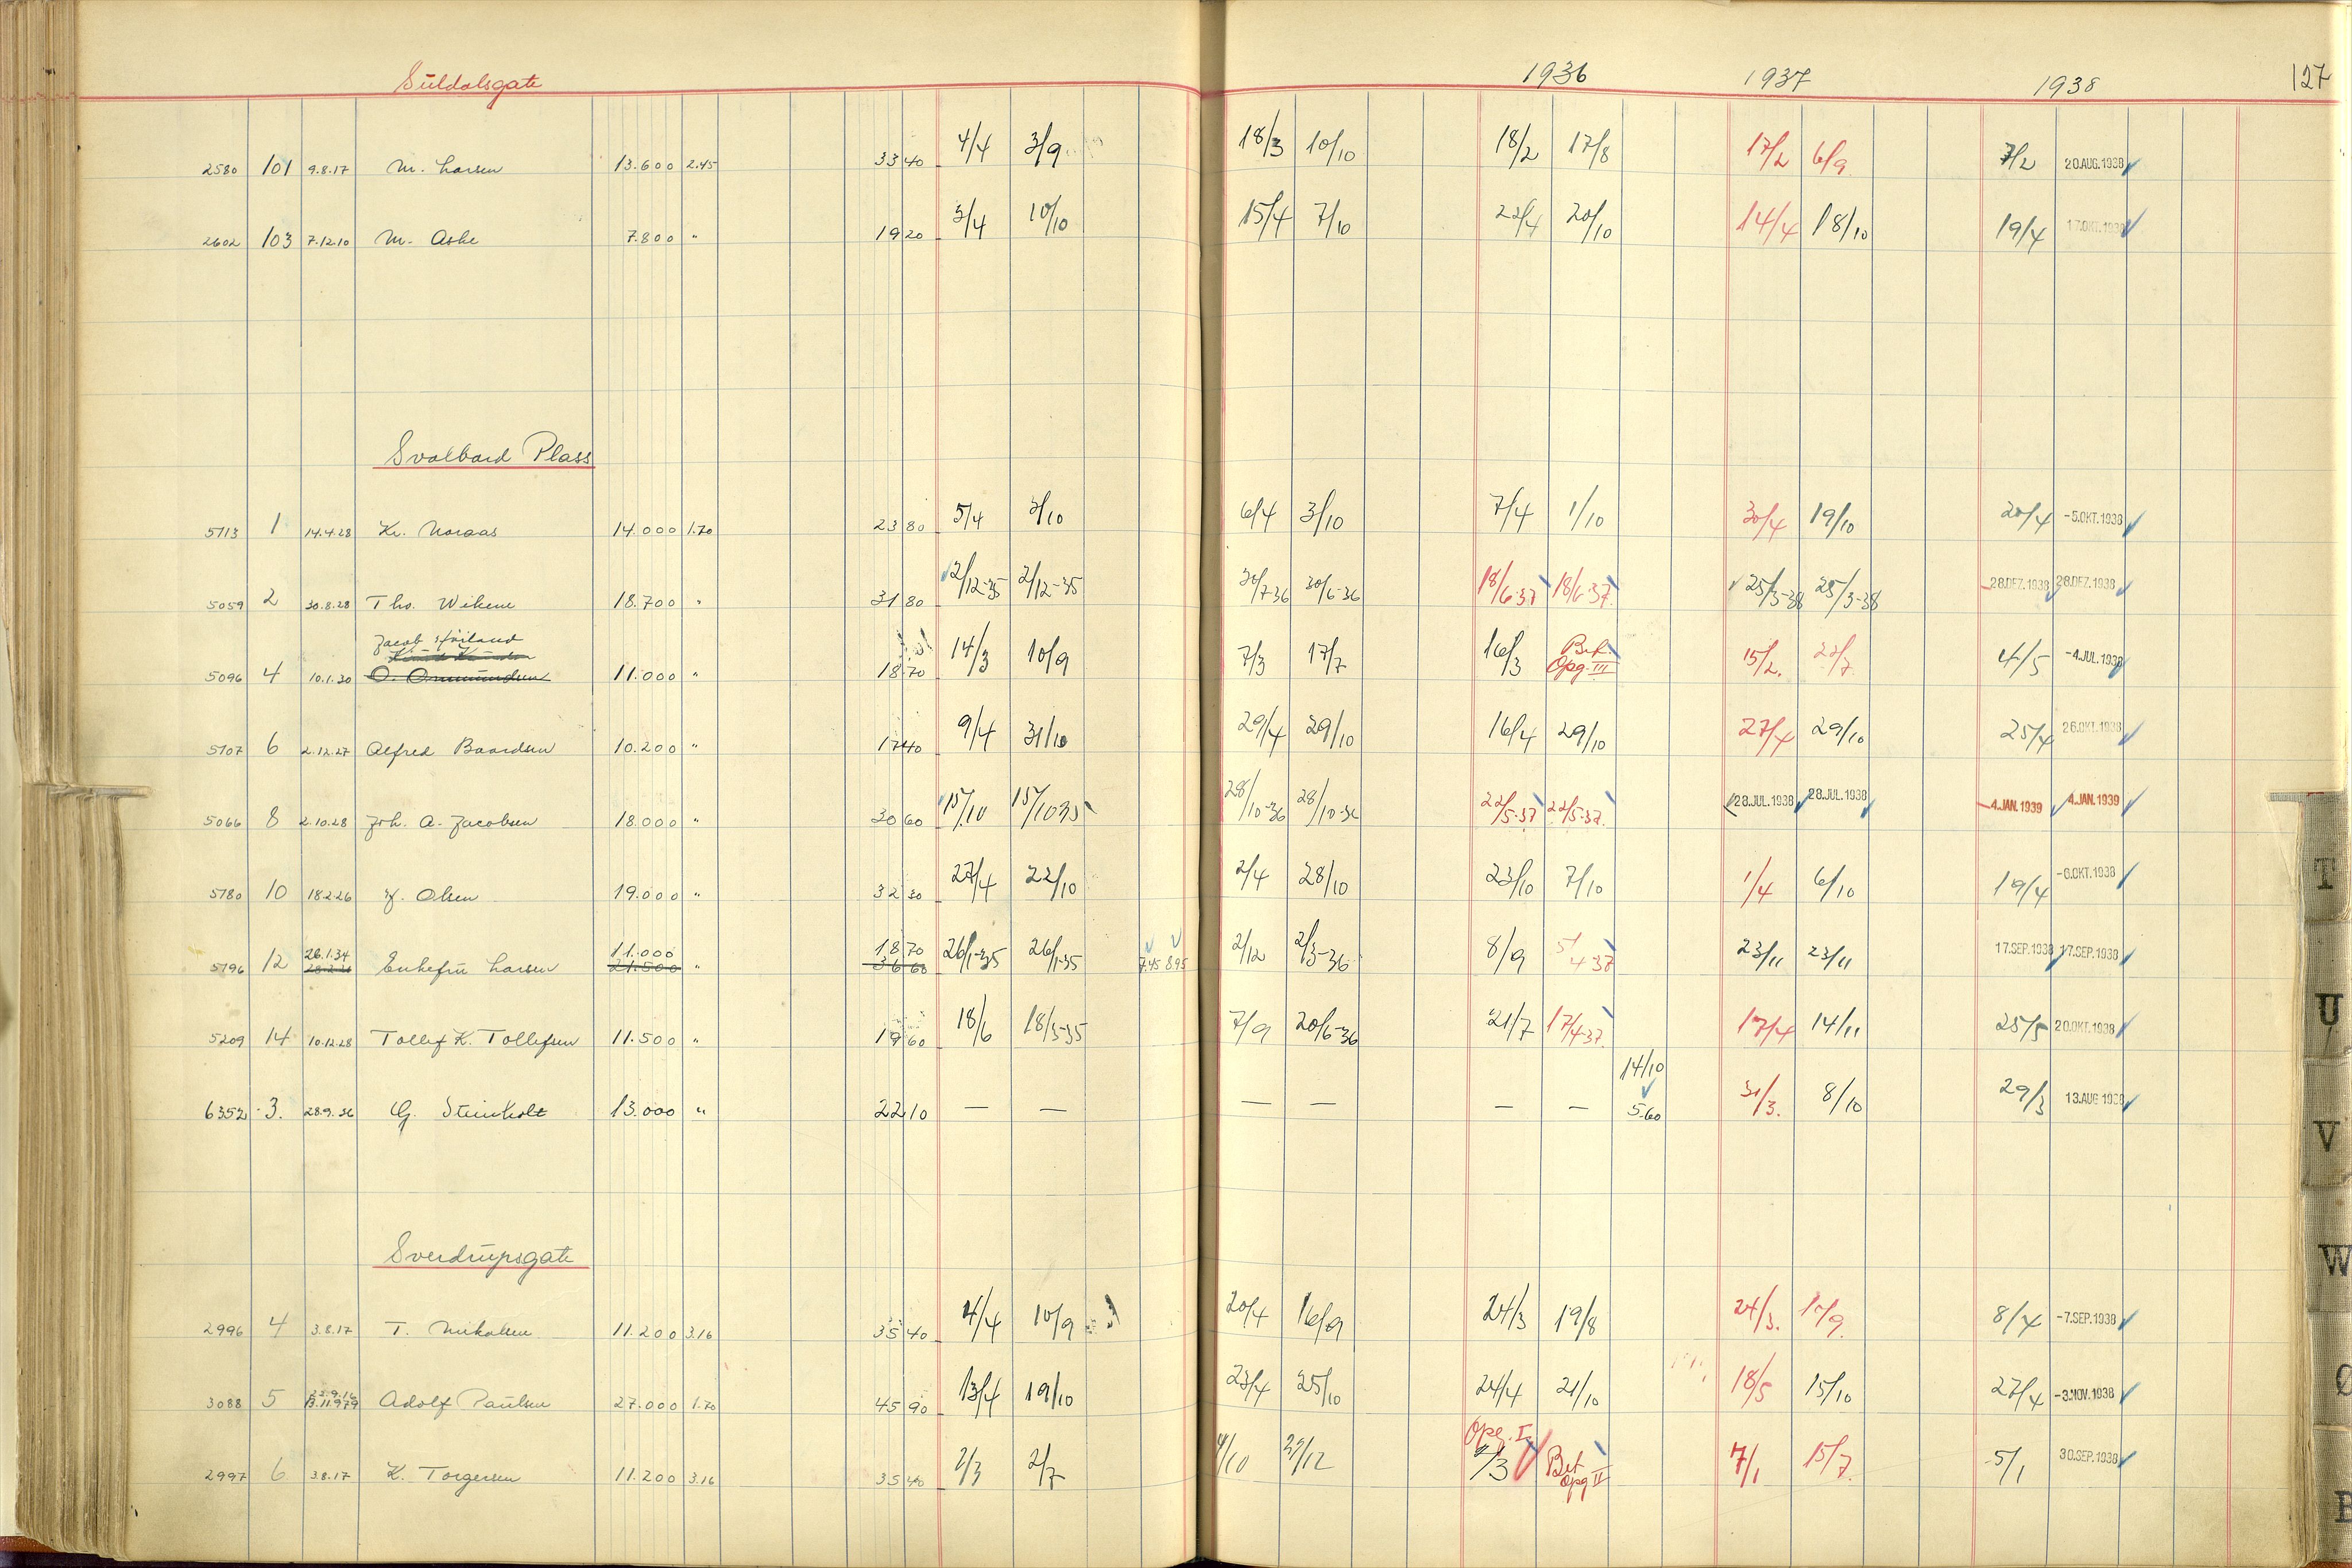 Suldalsgate 1936 1937 1938 127
2580 101 9.8.17 M. Larsen 13.600 2.45 33 40 4/4 3/9 18/3 10/10 18/2 17/8 17/2 6/9 7/2 20.AUG.1938
2602 103 7.12.10 M. Aske 7.800 " 19 20 3/4 10/10 15/4 7/10 22/4 20/10 14/4 18/10 19/4 17.OKT.1938
Svalbard Plass
5113 1 14.4.28 Kr. Noraas 14.000 1.70 23 80 5/4 3/10 6/4 3/10 7/4 1/10 30/4 19/10 20/4 -5.OKT.1938
5059 2 30.8.28 Th. Wikene 18.700 " 31 80 2/12-35 2/12-35 30/7-36 30/6-36 18/6-37 18/6-37 25/3-38 25/3-38 28.DEZ.1938 28.DEZ.1938
Jacob Høiland
5096 4 10.1.30 O. Ommundsen 11.000 " 18 70 14/3 10/9 7/3 17/7 16/3 Bet. Opg. III 15/2. 22/7. 4/5 -4.JUL.1938
5107 6 2.12.27 Alfred Baardsen 10.200 " 17 40 9/4 31/10 29/4 29/10 16/4 29/10 27/4 29/10 25/4 26.OKT.1938
5066 8 2.10.28 Joh. A. Jacobsen 18.000 " 30 60 15/10 15/10 35 28/10-36 28/10-36 22/5-37 22/5-37. 28.JUL.1938 28.JUL.1938 -4.JAN.1939 4.JAN.1939
5180 10 18.2.26 Olsen 19.000 " 32 30 27/4 22/10 2/4 28/10 23/10 7/10 1/4 6/10 19/4 -6.OKT.1938
26.1.34 11.000 18 70
5196 12 Enkefru Larsen 21.500 " 36 60 26/1-35 26/1-35 7.45 8.95 2/12 2/3-36 8/9 5/4 37 23/11 23/11 17.SEP.1938 17.SEP.1938
5209 14 10.12.28 Tollef K. Tollefsen 11.500 " 19 60 18/6 18/3-35 7/9 20/6-36 21/7 17/4-37. 17/4 14/11 25/5 20.OKT.1938
14/10
6352 3. 28.9.36 G. Steinholt 13.000 " 22 10 — — — — — — 5.60 31/3. 8/10 29/3 13.AUG.1938
Sverdrupsgate
2996 4 3.8.17 T. Nikolsen 11.200 3.16 35 40 4/4 10/9 20/4 16/9 24/3 19/8 24/3. 17/9. 8/4 -7.SEP.1938
3088 5 Adolf Paulsen 27.000 1.70 45 90 13/4 19/10 23/4 25/10 24/4 21/10 18/5 15/10 27/4 -3.NOV.1938
Opg. I.
2997 6 3.8.17 K. Torgersen 11.200 3.16 35 40 2/3 2/7 4/10 /12 2/3 Bet Opg II 7/1 15/7. 5/1 30.SEP.1938
T
U
V
W
Ø